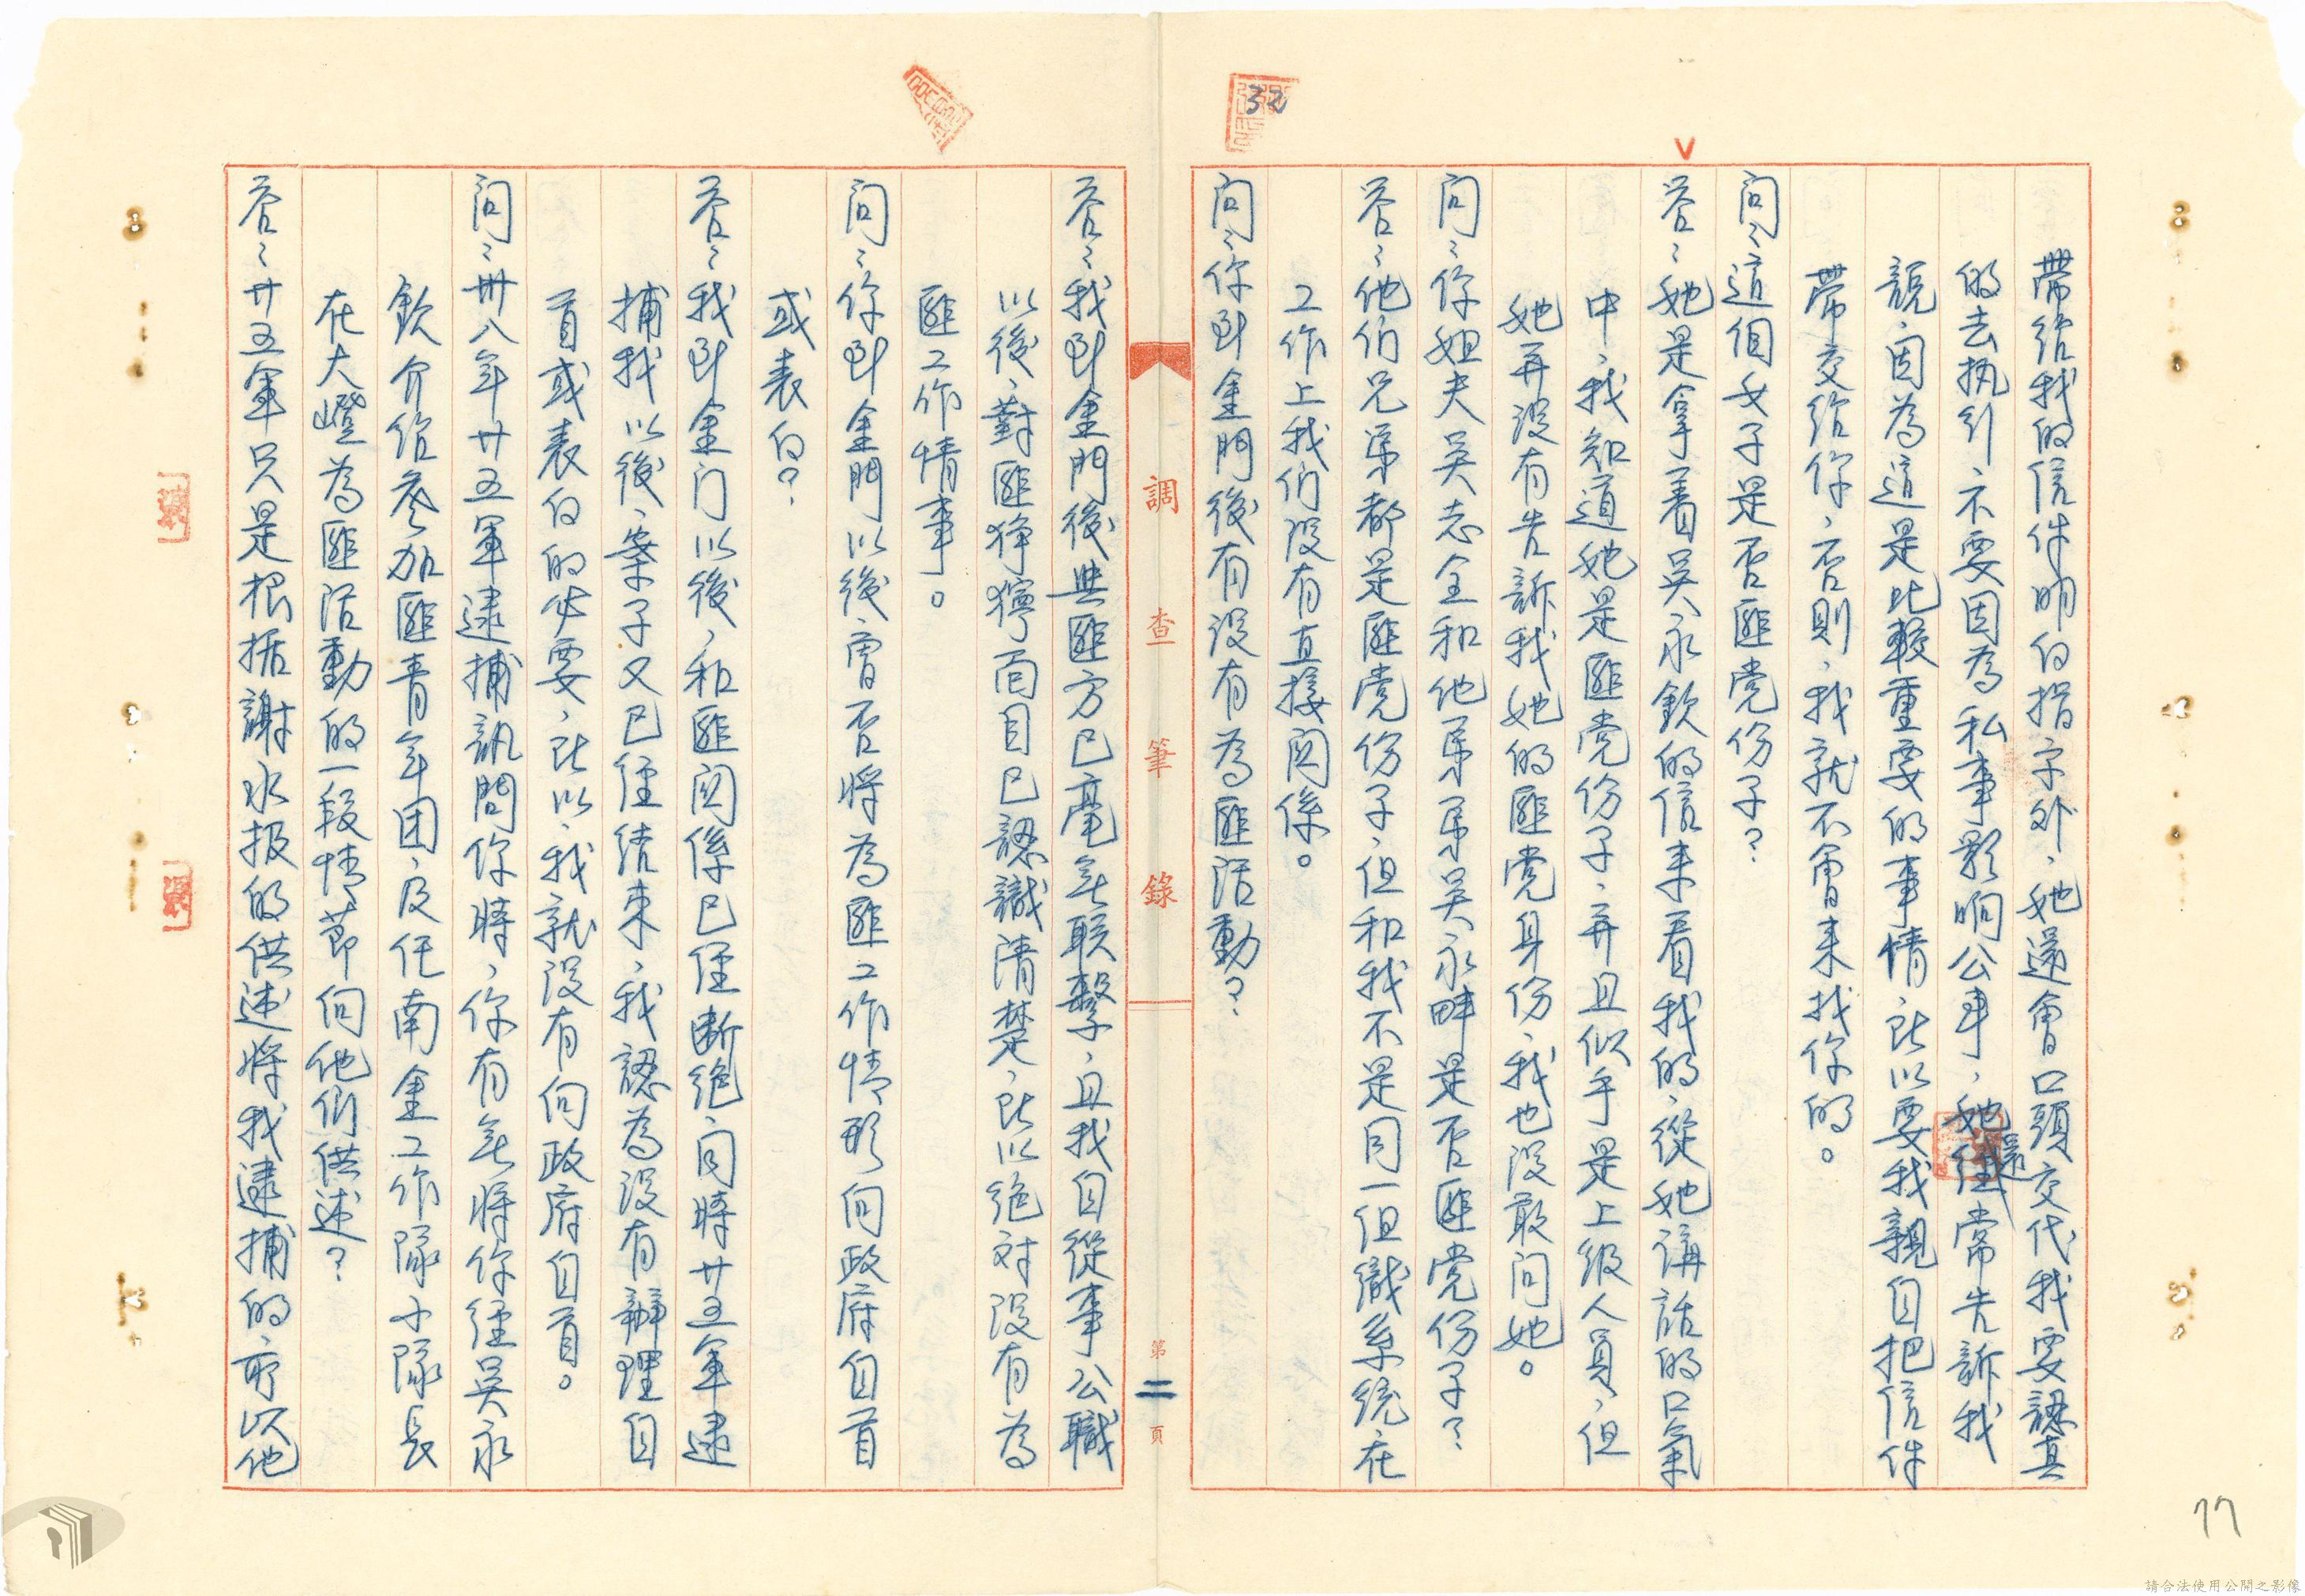 32
帶給我的信件明白指示外，她還會口頭交代我要認真
的去执行不要因為私事影响公事，她還經常告訴我
說，因為這是比較重要的事情，所以要我親自把信件
帶交給你，否則，我就不會来找你的。
问：這個女子是否匪党份子？
答：她是拿着吳永欽的信来看我的，從她講話的口氣
中，我知道她是匪党份子，并且似乎是上级人員，但
她再没有告訴我她的匪党身份，我也没敢问她。
问：你姐夫吳志全和他弟弟吳永畔是否匪党份子？
答：他们兄弟都是匪党份子，但和我不是同一個組織系統在
工作上我们没有直接関係。
问：你到金門後有没有為匪活動？
調查筆錄
第二頁
答：我到金門後與匪方已毫無联繫，且我自從事公職
以後，對匪猙獰面目已認識清楚，所以絕对没有為
匪工作情事。
问：你到金門以後，曾否将為匪工作情形向政府自首
或表白？
答：我到金门以後，和匪関係已經断絕，同時廿五軍逮
捕我以後，案子又已經結束，我認為没有辦理自
首或表白的必要，所以，我就没有向政府自首。
问：卅八年廿五軍逮捕訊問你時，你有無将你經吳永
欽介紹參加匪青年团，及任南金工作隊小隊長
在大嶝為匪活動的一段情節向他們供述？
答：廿五軍只是根据謝水报的供述将我逮捕的所以他
77
請合法使用公開之影像